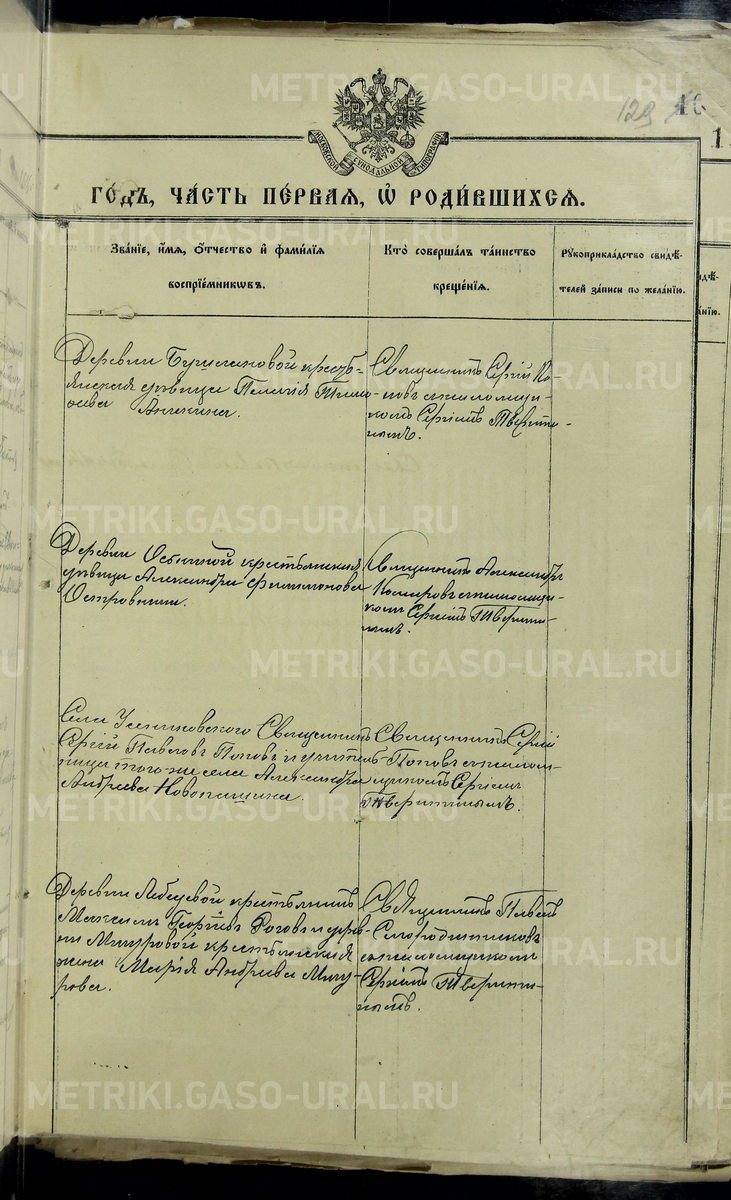 METRIKI.GASO-URAL.RU
129
МОСКОВСКОЙ СѴНОДАЛЬНОЙ ТИПОГРАФІИ
ГО́ДЪ, ЧА́СТЬ ПЕ́РВАЯ, Ѡ҆ РОДИ́ВШИХСЯ.
Зва́нїе, и҆́мя, ѻ҆́тчество и҆ фами́лїя
воспрїе́мникѡвъ.
Кто̀ соверша́лъ та́инство
креще́нїя.
Рꙋкоприкла́дство свидѣ́-
телей за́писи по жела́нїю.
Деревни крестья-
янская дѣвица Пелагія
Аникина.
Священникъ Сергій По-
повъ съ псаломщи-
комъ Сергіемъ Тверити-
нымъ.
Деревни крестьянская
дѣвица Александра Филимонова
Островныхъ.
Священникъ Александръ
съ псаломщи-
комъ Сергіемъ Тверити-
нымъ.
Села Священникъ
Сергій Павловъ Поповъ и учитель-
ница того-же села Александра
Андреева Новопашина.
Священникъ Сергій
Поповъ съ псалом-
щикомъ Сергіемъ
Тверитинымъ.
Деревни Лебедевой крестьянинъ
Максимъ Георгіевъ Роговъ и дерев-
ни Мичуровой крестьянская
жена Марія Андреева Мичу-
рова.
Священникъ Павелъ
съ псаломщикомъ
Сергіемъ Тверити-
нымъ.